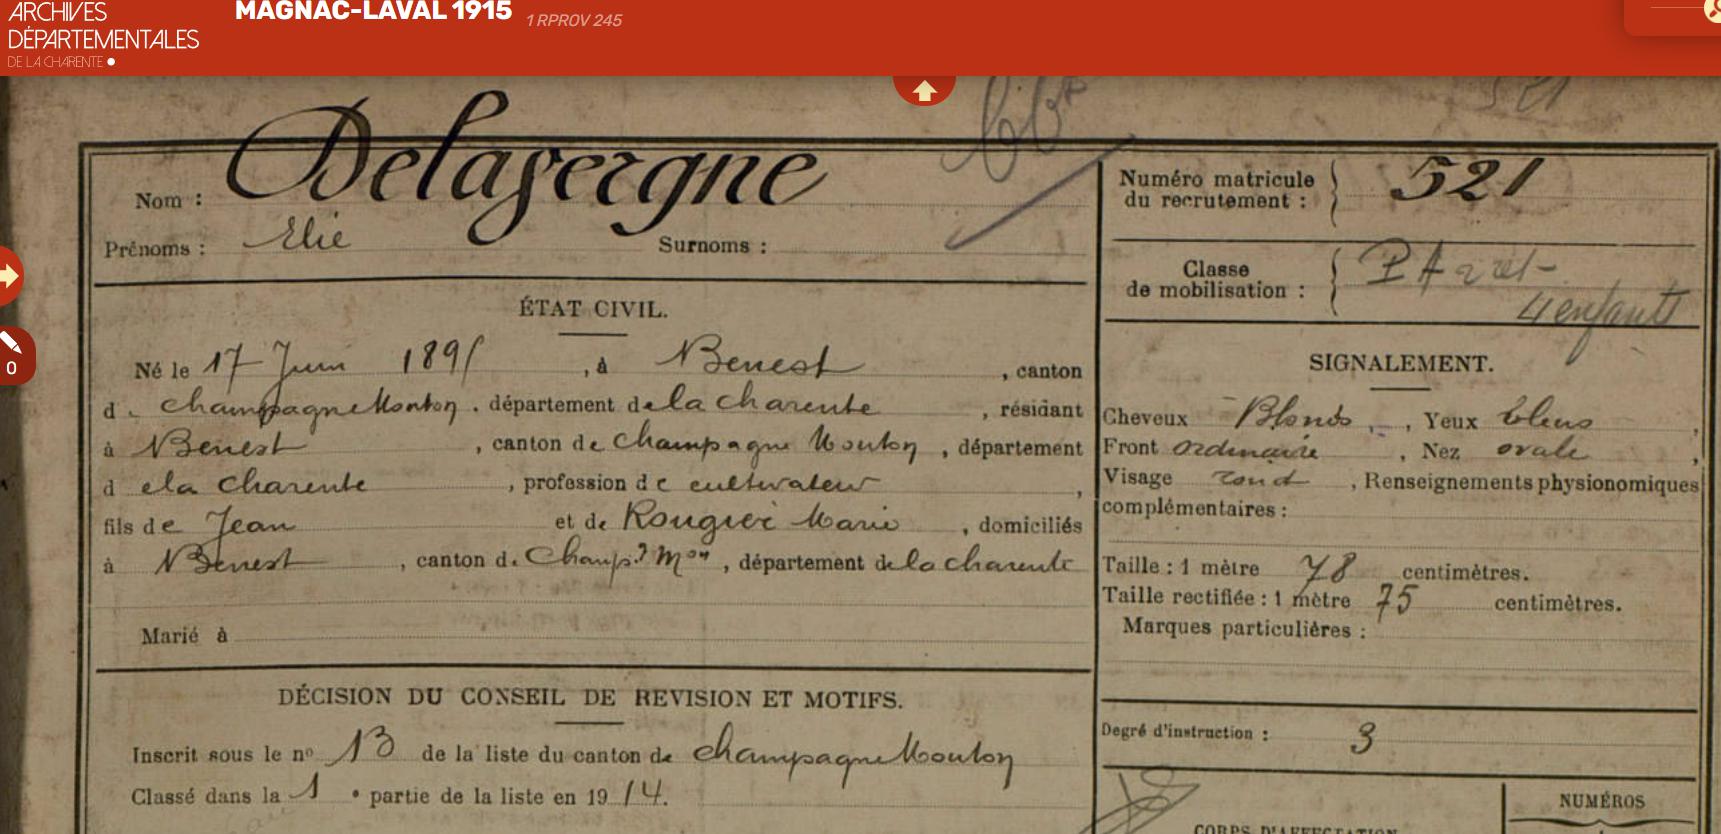 ARCHIVES
DÉPARTEMENTALES
DE LA CHARENTE
MAGNAC-LAVAL 1915 1 RPROV 245
521
Nom : Delavergne
Prénoms : Elie Surnoms :
Numéro matricule
du recrutement : 521
Classe
de mobilisation :
4 enfants
ÉTAT CIVIL.
Né le 17 Juin 1895, à Benest, canton
de Champagne Mouton, département de la Charente, résidant
à Benest, canton de Champagne Mouton, département
de la Charente, profession de cultivateur,
fils de Jean et de Rougier Marie, domiciliés
à Benest, canton de Champ.e Mon, département de la Charente
Marié à
SIGNALEMENT.
Cheveux Blonds, Yeux bleus,
Front ordinaire, Nez ovale,
Visage rond, Renseignements physionomiques
complémentaires :
Taille : 1 mètre 78 centimètres.
Taille rectifiée : 1 mètre 75 centimètres.
Marques particulières :
Degré d'instruction : 3
DÉCISION DU CONSEIL DE REVISION ET MOTIFS.
Inscrit sous le no 13 de la liste du canton de Champagne Mouton
Classé dans la 1e partie de la liste en 1914.
CORPS D'AFFECTATION
NUMÉROS
0